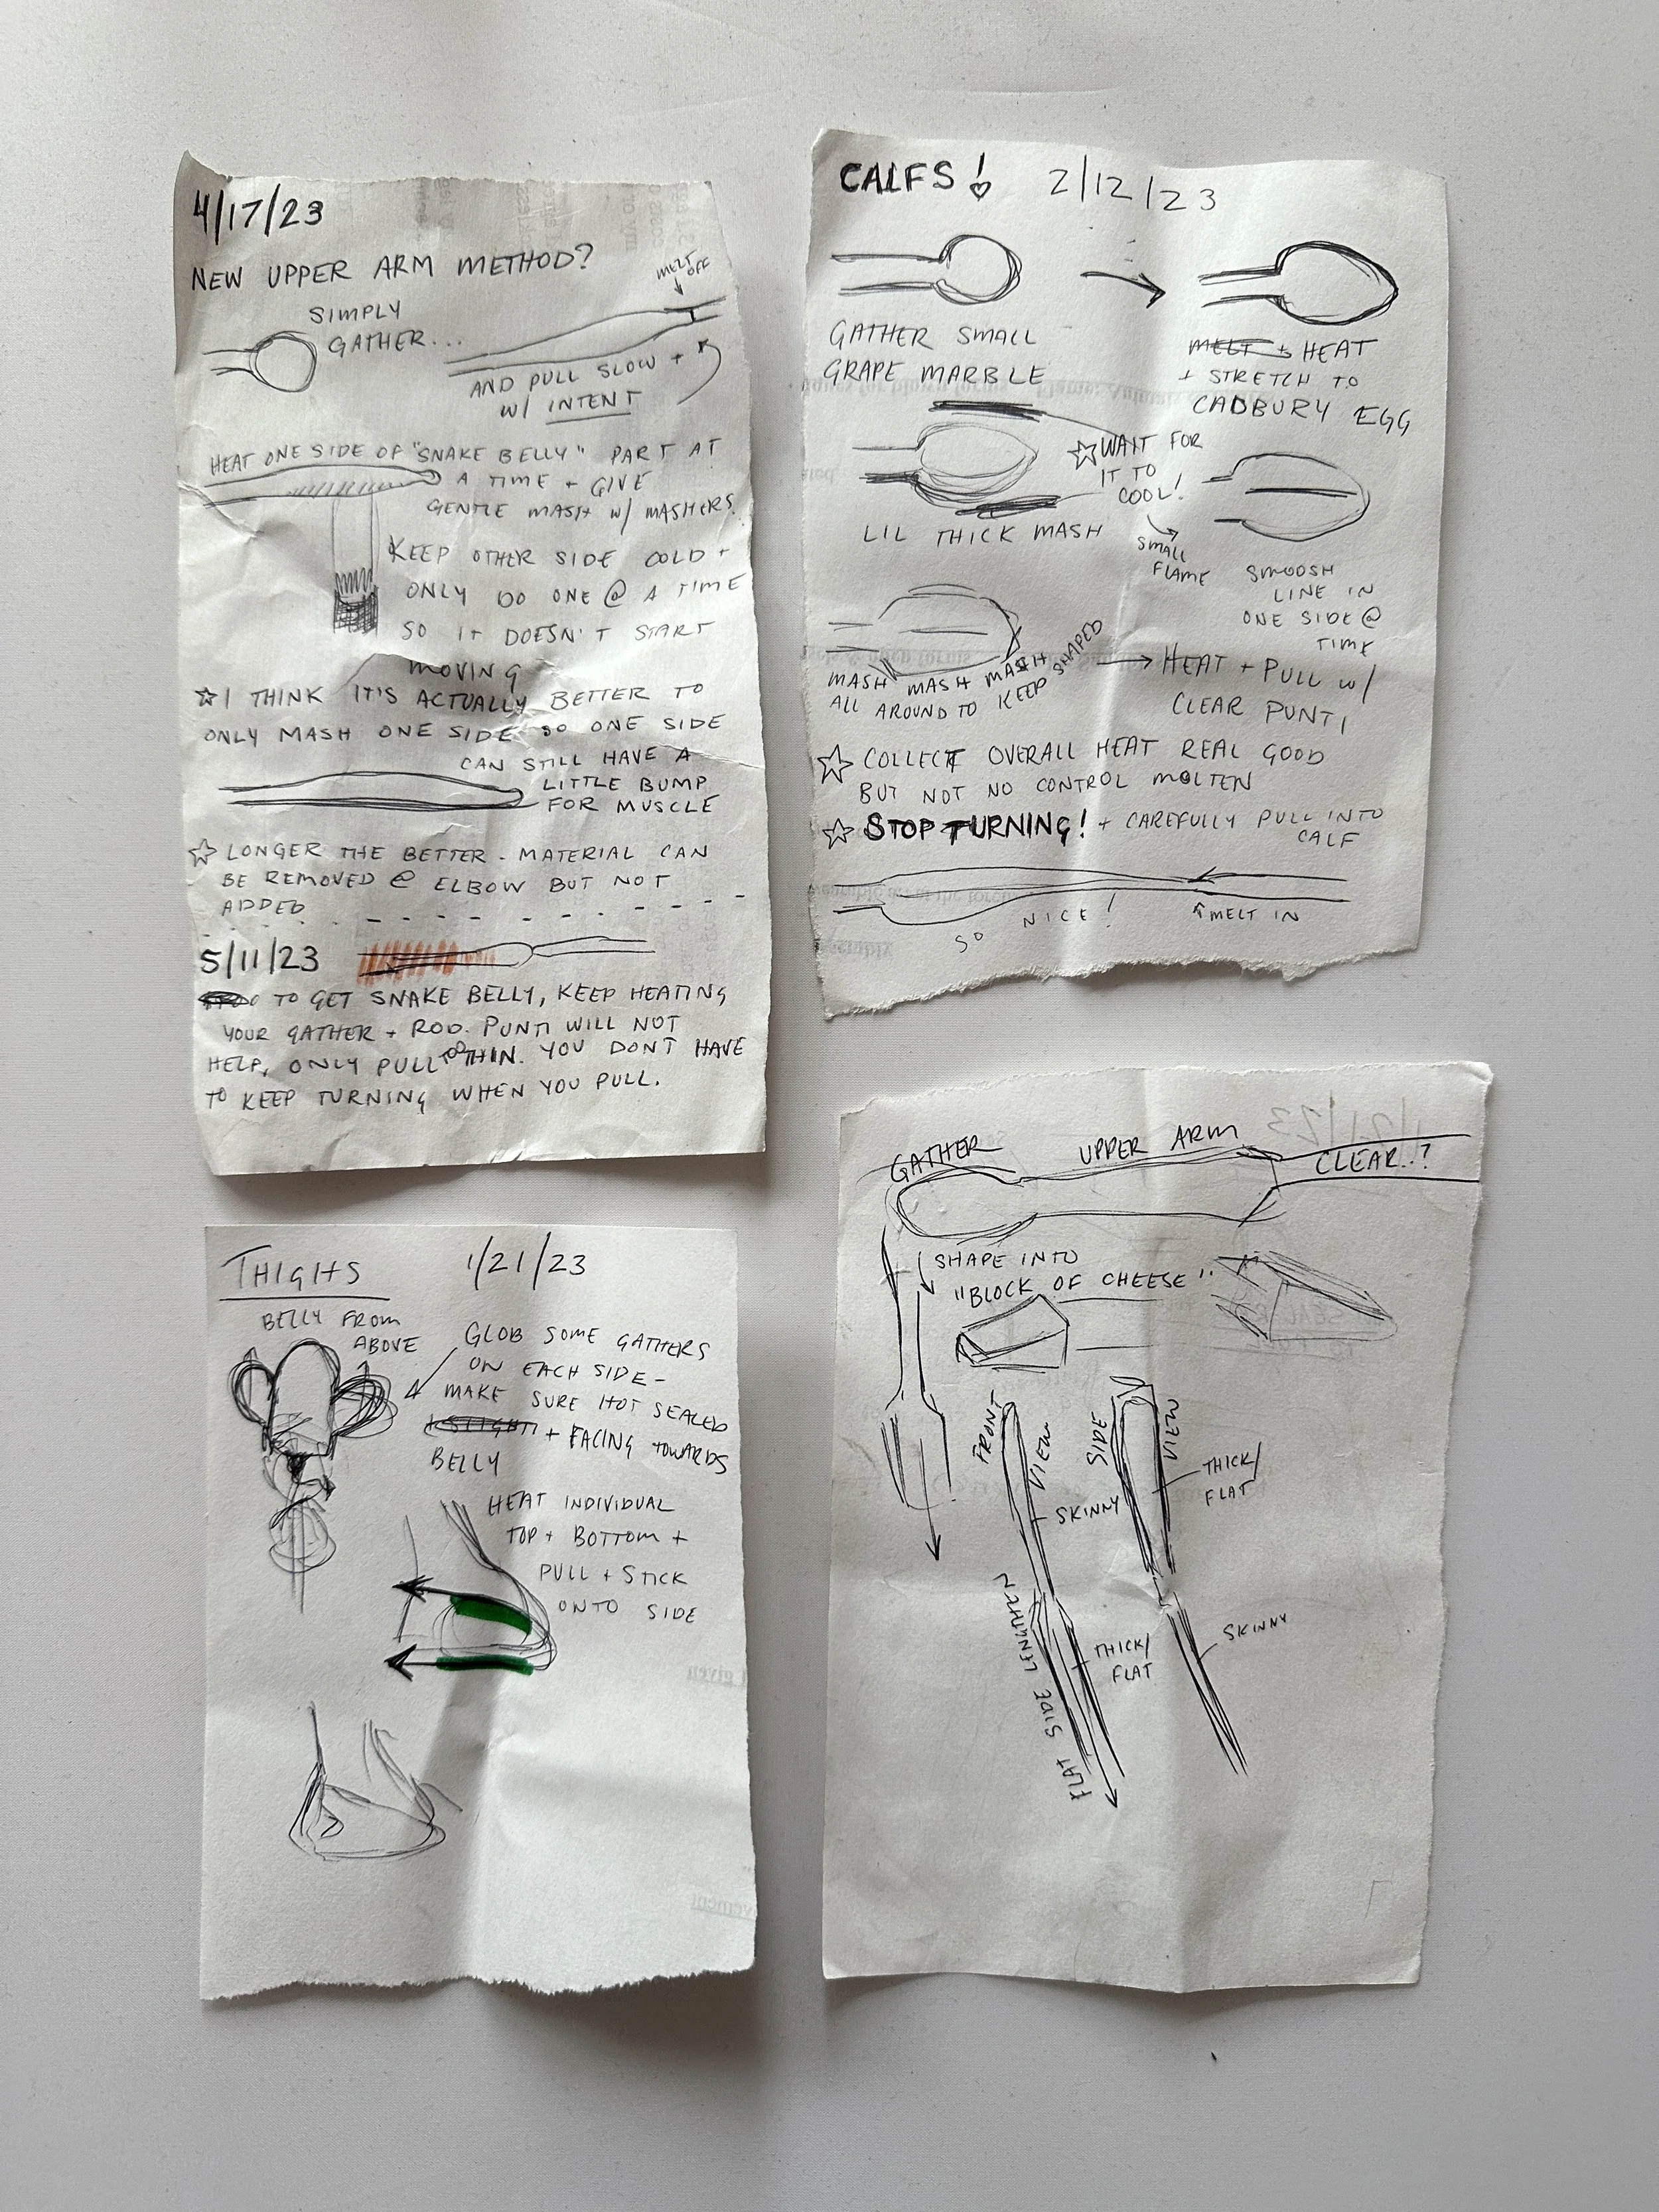 4/17/23
NEW UPPER ARM METHOD?
SIMPLY
GATHER...
MELT
OFF
AND PULL SLOW +
W/ INTENT
HEAT ONE SIDE OF "SNAKE BELLY" PART AT
A TIME + GIVE
GENTLE MASH W/ MASHERS.
KEEP OTHER SIDE COLD +
ONLY DO ONE @ A TIME
SO IT DOESN'T START
MOVING
☆ I THINK IT'S ACTUALLY BETTER TO
ONLY MASH ONE SIDE SO ONE SIDE
CAN STILL HAVE A
LITTLE BUMP
FOR MUSCLE
☆ LONGER THE BETTER - MATERIAL CAN
BE REMOVED @ ELBOW BUT NOT
ADDED
5/11/23
TO GET SNAKE BELLY, KEEP HEATING
YOUR GATHER + ROD. PUNTI WILL NOT
HELP, ONLY PULL TOO THIN. YOU DON'T HAVE
TO KEEP TURNING WHEN YOU PULL.
CALFS! 2/12/23
GATHER SMALL
GRAPE MARBLE
MELT + HEAT
+ STRETCH TO
CADBURY EGG
LIL THICK MASH
☆ WAIT FOR
IT TO
COOL!
SMALL
FLAME
SMOOSH
LINE IN
ONE SIDE @
TIME
MASH MASH MASH
ALL AROUND TO KEEP SHAPED
HEAT + PULL W/
CLEAR PUNTI
☆ COLLECT OVERALL HEAT REAL GOOD
BUT NOT NO CONTROL MOLTEN
☆ STOP TURNING! + CAREFULLY PULL INTO
CALF
SO NICE!
MELT IN
THIGHS 1/21/23
BELLY FROM
ABOVE
GLOB SOME GATHERS
ON EACH SIDE -
MAKE SURE HOT SEALED
+ FACING TOWARDS
BELLY
HEAT INDIVIDUAL
TOP + BOTTOM +
PULL + STICK
ONTO SIDE
GATHER
UPPER ARM
CLEAR..?
SHAPE INTO
"BLOCK OF CHEESE"
FRONT VIEW
SKINNY
SIDE VIEW
THICK/
FLAT
FLAT SIDE LENGTHEN
THICK/
FLAT
SKINNY